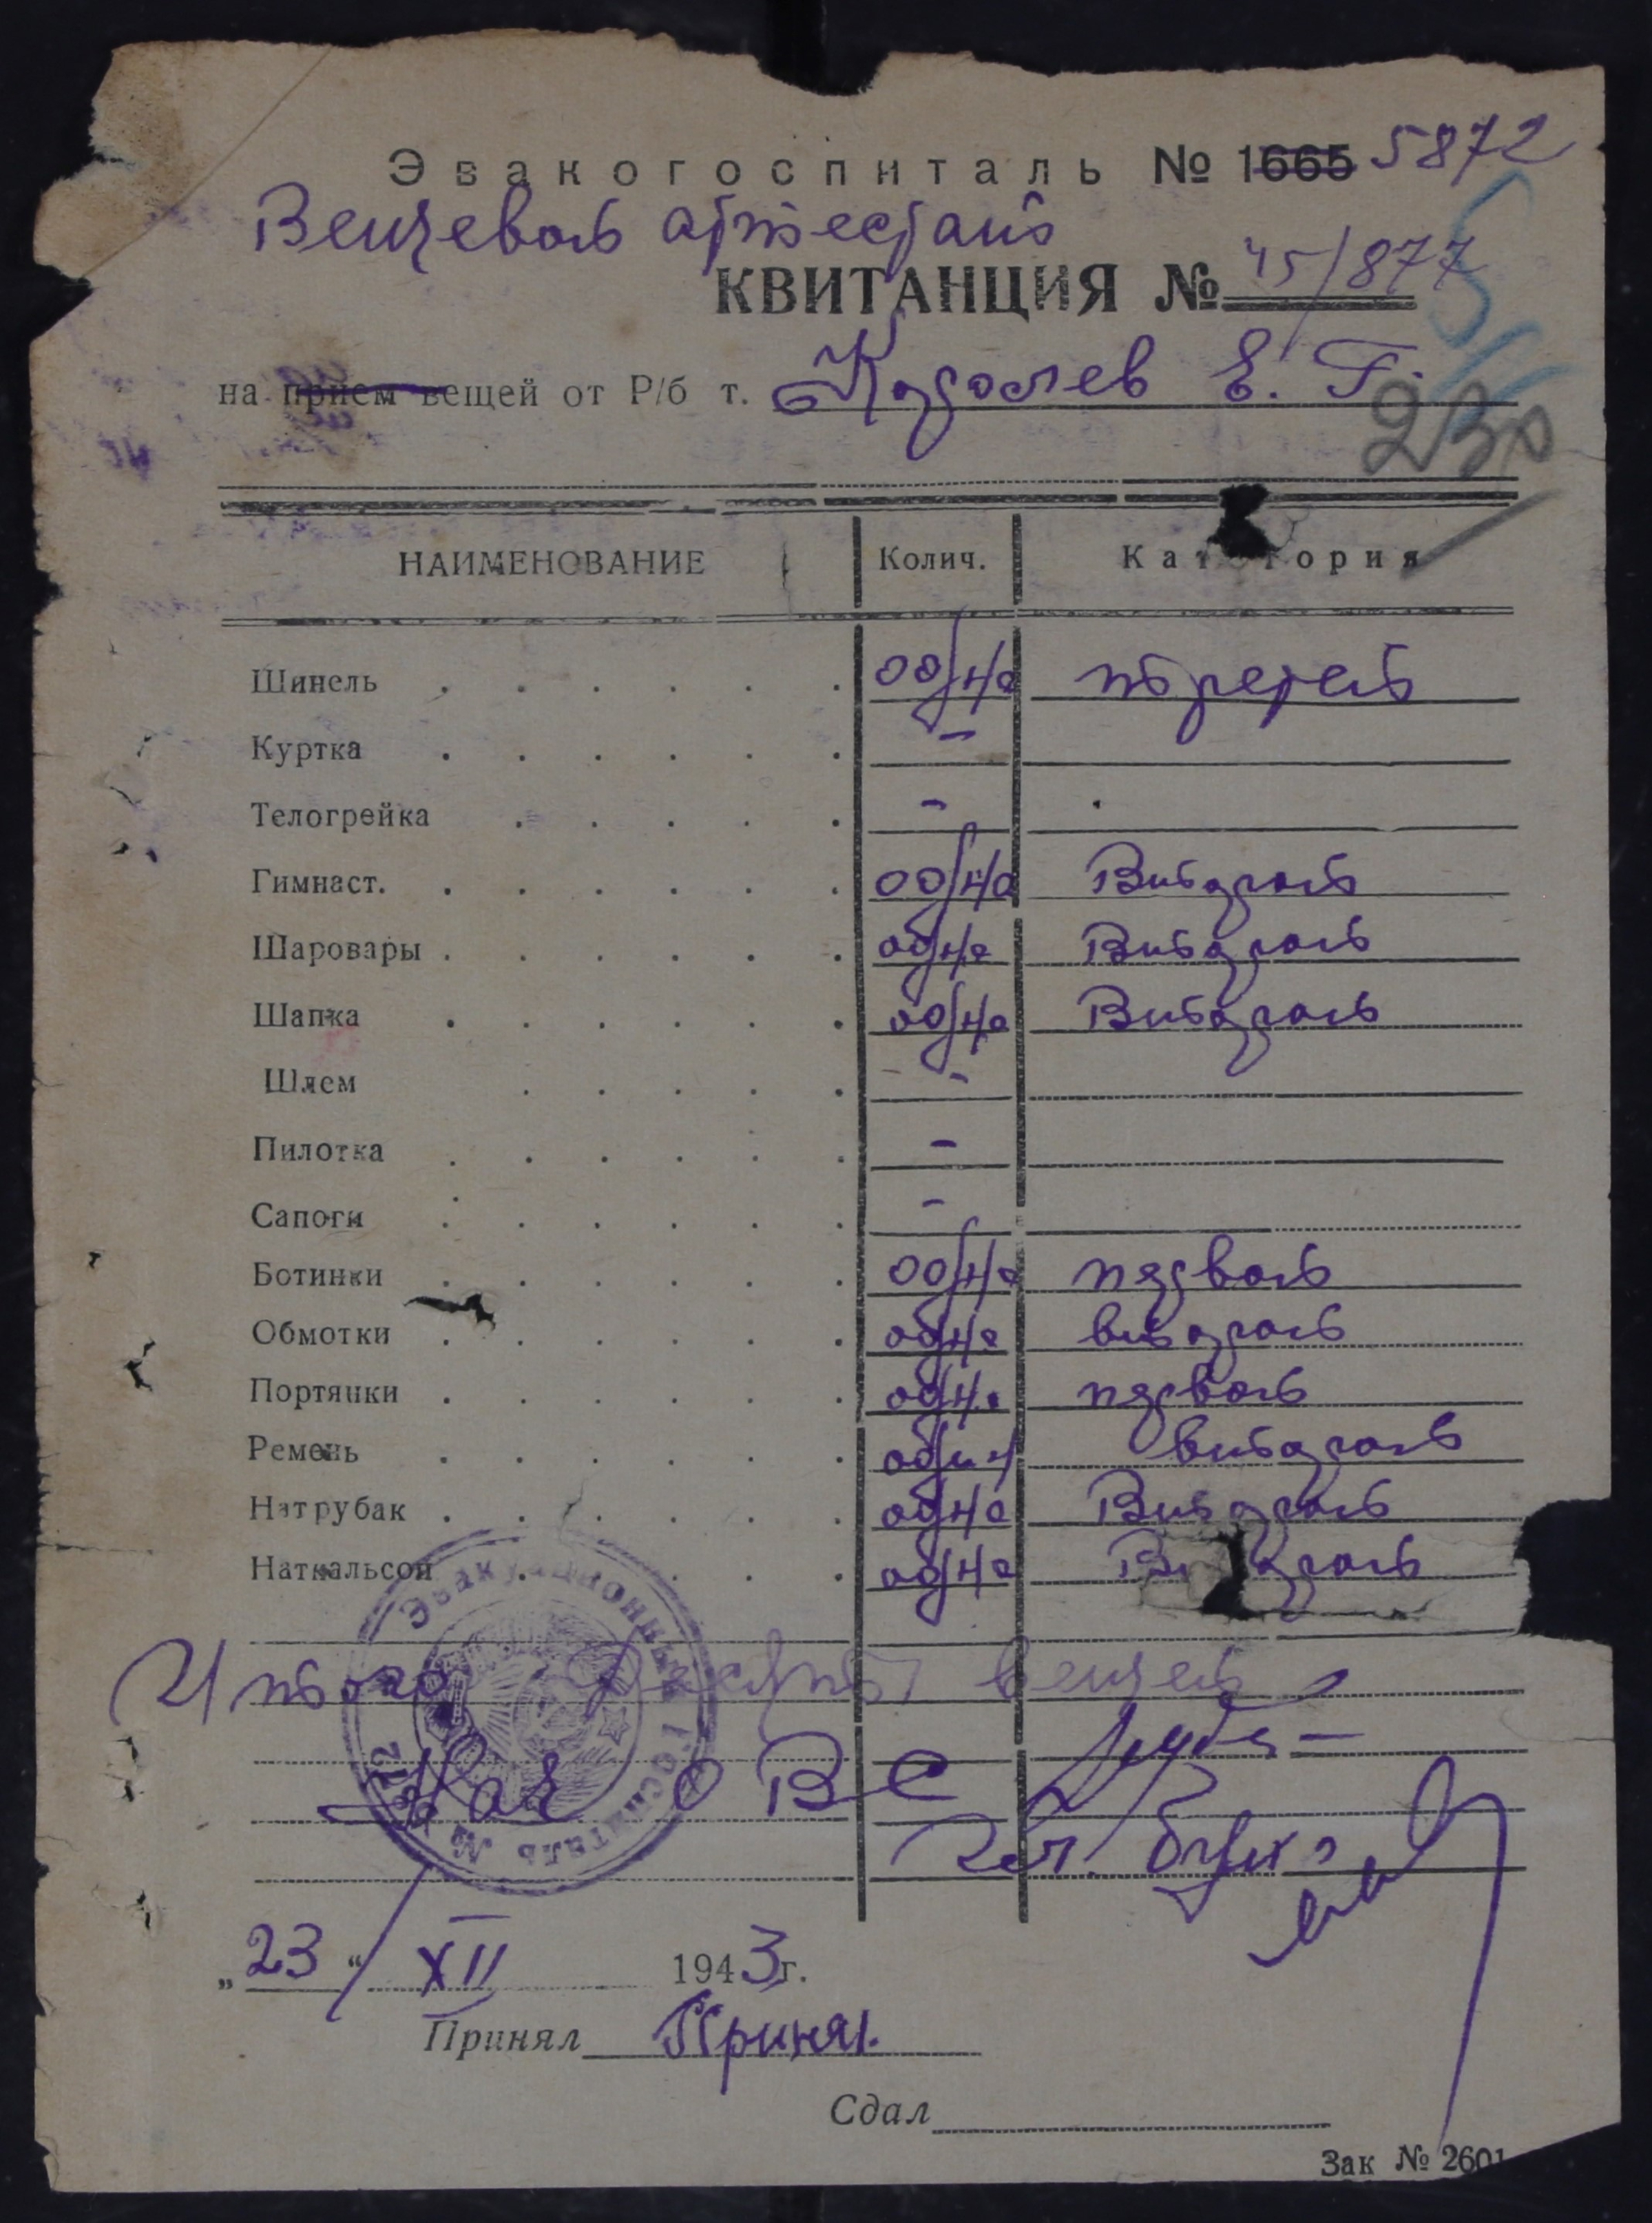 Эвакогоспиталь № 1665 5872
Вещевой аттестат
КВИТАНЦИЯ № 45/877
на прием вещей от Р/б т. Е. Г.
230
НАИМЕНОВАНИЕ Колич. Категория
Шинель одна третей
Куртка —
Телогрейка —
Гимнаст. одна Вторай
Шаровары одна Вторай
Шапка одна Вторай
Шлем -
Пилотка —
Сапоги -
Ботинки одна первай
Обмотки одна вторай
Портянки одна первай
Ремень один вторай
Натрубак одна Вторай
Наткальсон одна Вторай
Итого вещей
Нач ОВС
Эвакуационный госпиталь № 5872
„23“ XII 1943г.
Принял Принял
Сдал
Зак № 2601